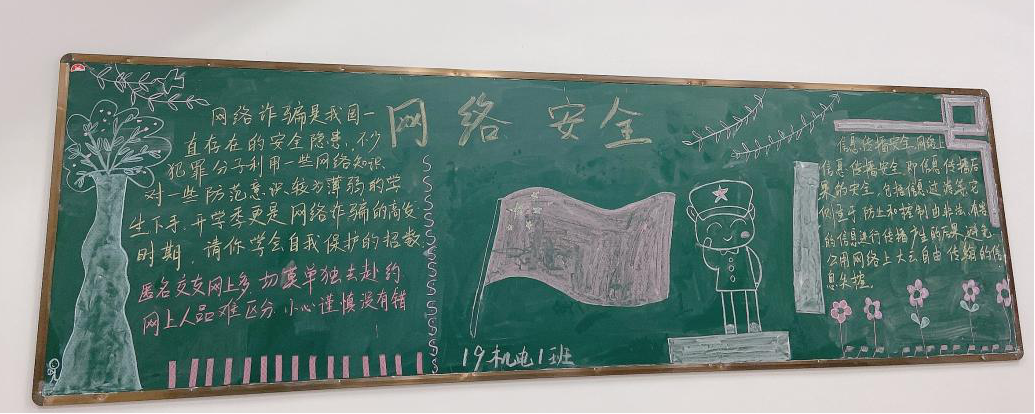 网络安全
网络诈骗是我国一
直存在的安全隐患,不少
犯罪分子利用一些网络知识
对一些防范意识较为薄弱的学
生下手,开学季更是网络诈骗的高发
时期,请你学会自我保护的招数
匿名交友网上多,切莫单独去赴约
网上人品难区分,小心谨慎没有错
19机电1班
信息传播安全,网络上
信息传播安全,即信息传播后
果的安全,包括信息过滤等,它
侧重于防止和控制由非法、有害
的信息进行传播产生的后果,避免
公用网络上大云自由传输的信
息失控。